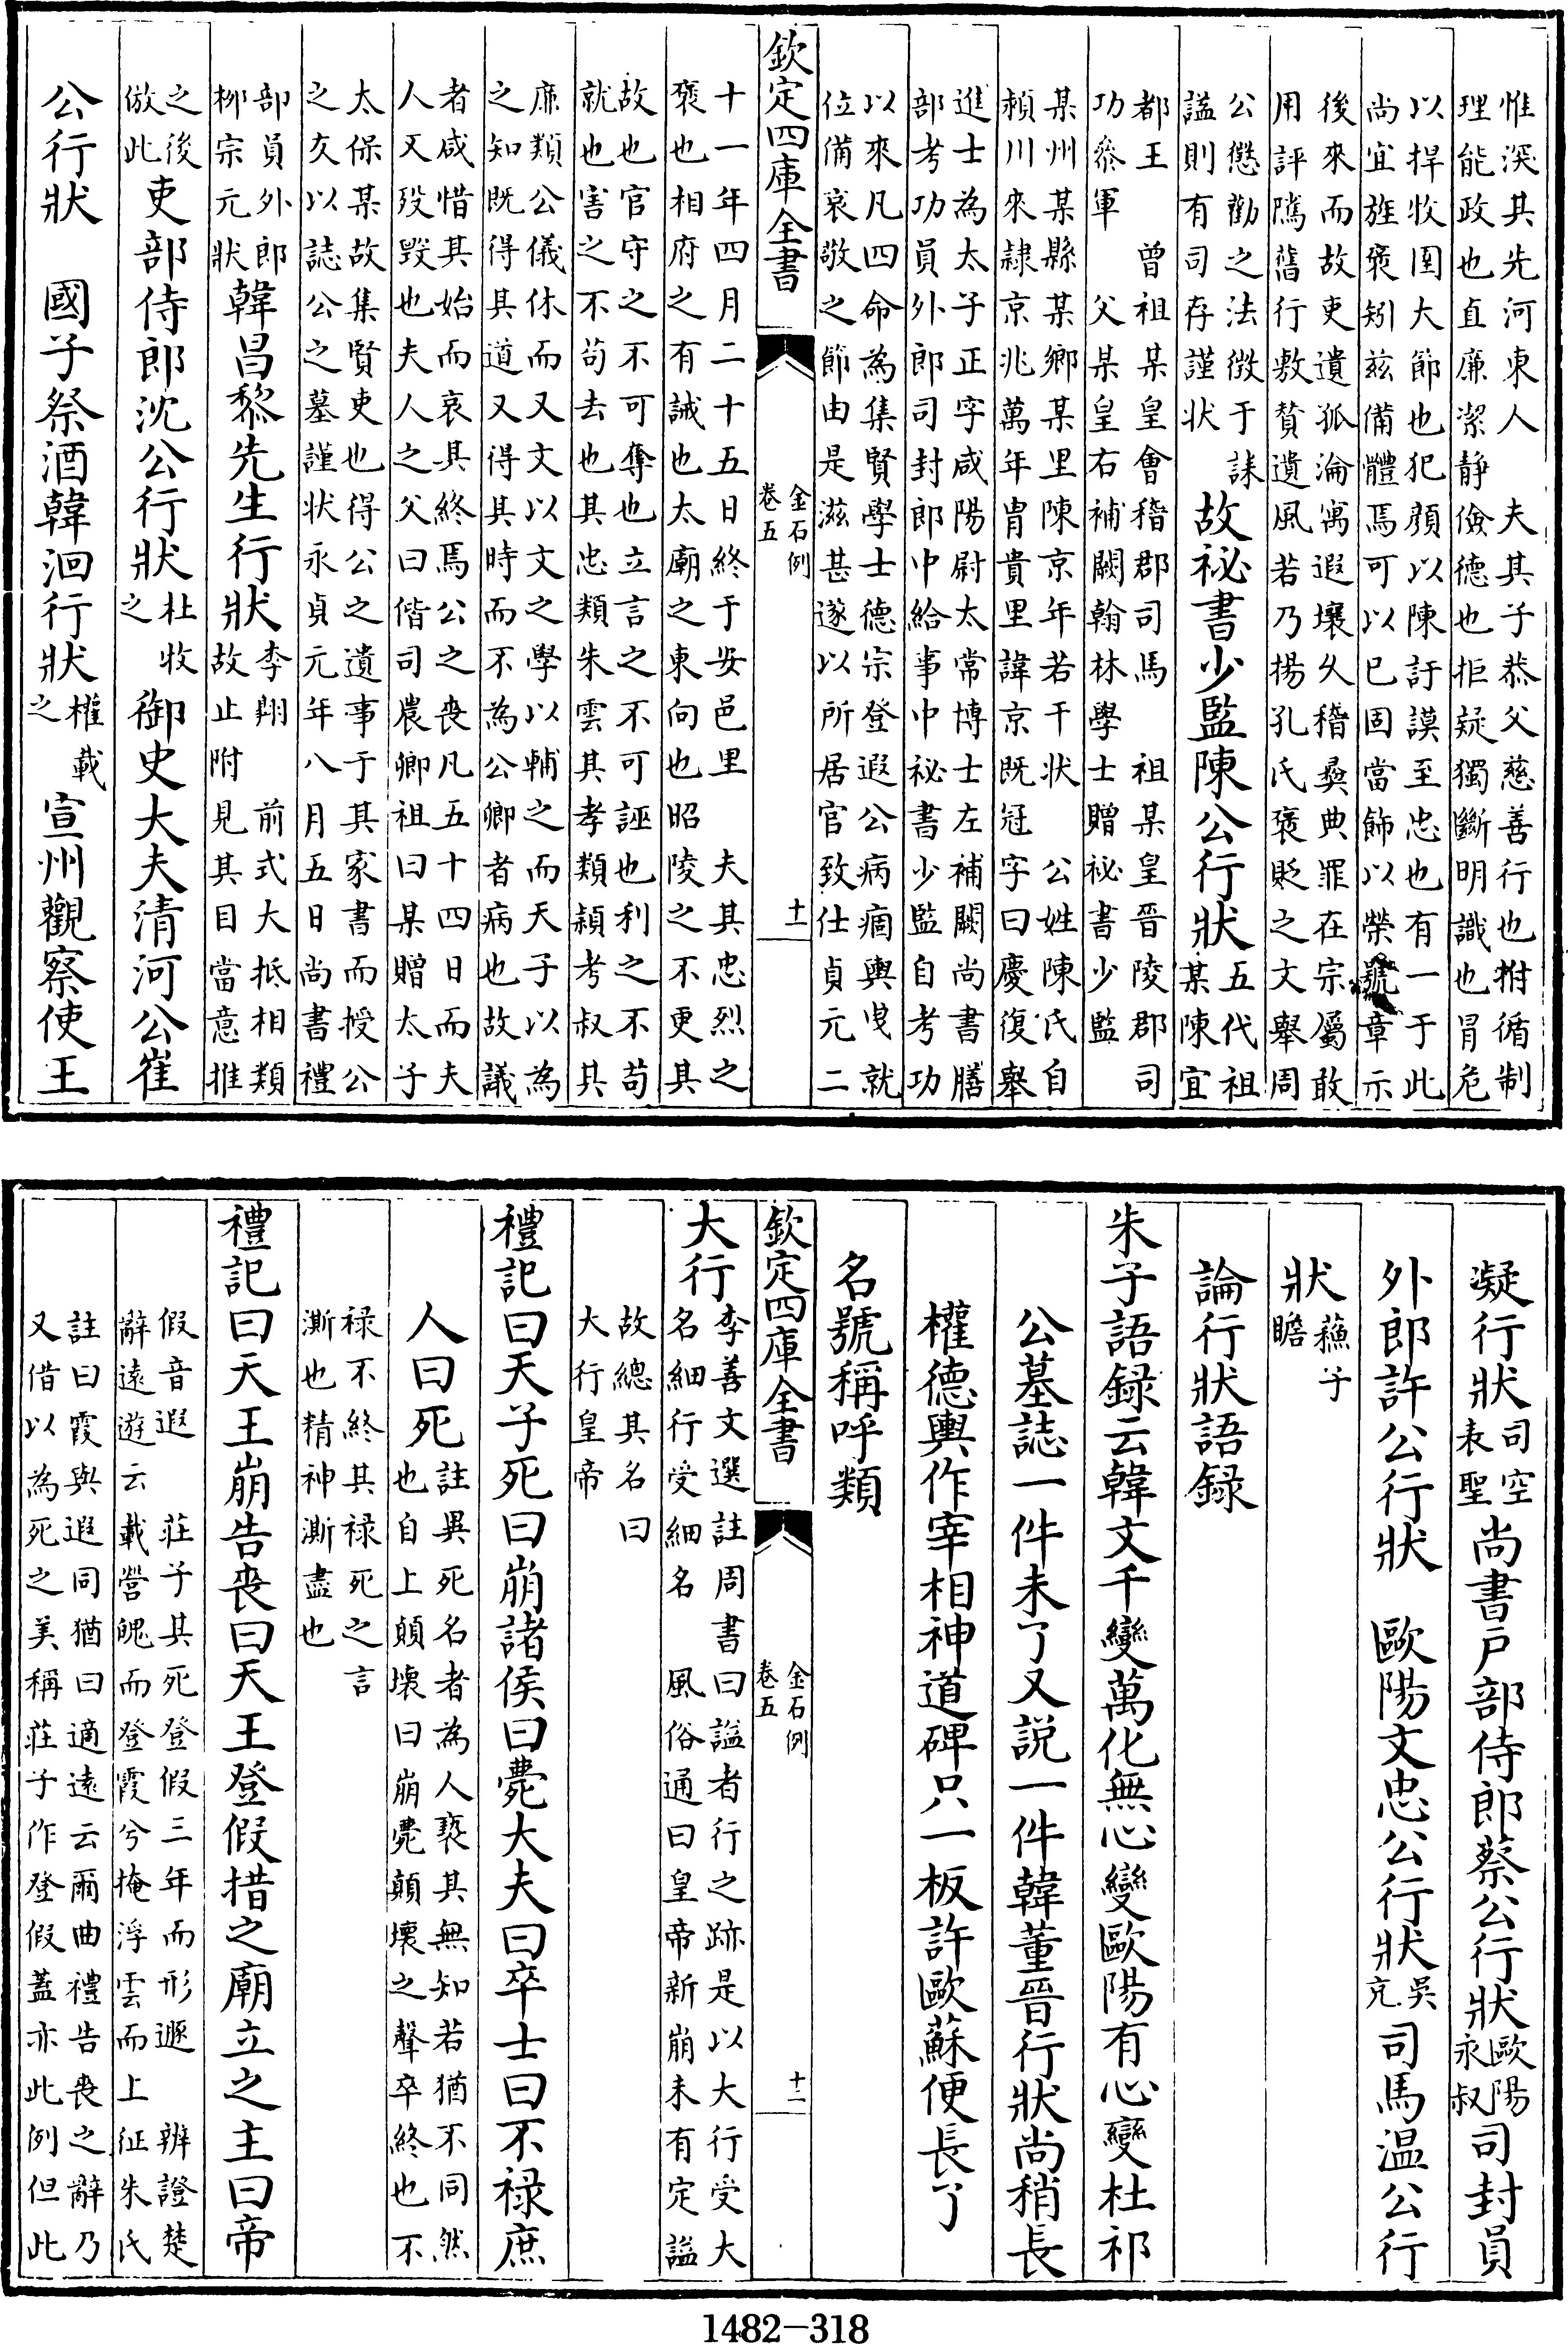 惟深其先河東人　夫其子恭父慈善行也柎循制
理能政也直廉潔静儉德也拒疑獨斷明識也冐危
以捍牧圉大節也犯顔以陳訏謨至忠也有一于此
尚宜旌褒矧兹備體焉可以已固當飾以榮號章示
後來而故吏遺孤淪寓遐壤久稽彝典罪在宗屬敢
用評隲舊行敷贊遺風若乃揚孔氏褒貶之文舉周
公懲勸之法徴于誄
謚則有司存謹狀
故祕書少監陳公行狀
五代祖
某陳宜
都王　曾祖某皇會稽郡司馬　祖某皇晉陵郡司
功叅軍　父某皇右補闕翰林學士贈祕書少監
某州某縣某鄉某里陳京年若干狀　公姓陳氏自
潁川來隷京兆萬年胄貴里諱京既冠字曰慶復舉
進士為太子正字咸陽尉太常博士左補闕尚書膳
部考功員外郎司封郎中給事中祕書少監自考功
以來凡四命為集賢學士德宗登遐公病痼輿曵就
位備哀敬之節由是滋甚遂以所居官致仕貞元二
欽定四庫全書
金石例
卷五
十一
十一年四月二十五日終于安邑里　夫其忠烈之
褒也相府之有誡也太廟之東向也昭陵之不更其
故也官守之不可奪也立言之不可誣也利之不苟
就也害之不苟去也其忠類朱雲其孝類潁考叔其
廉類公儀休而又文以文之學以輔之而天子以為
之知既得其道又得其時而不為公卿者病也故議
者咸惜其始而哀其終焉公之喪凡五十四日而夫
人又歿毁也夫人之父曰偕司農卿祖曰某贈太子
太保某故集賢吏也得公之遺事于其家書而授公
之友以誌公之墓謹狀永貞元年八月五日尚書禮
部員外郎
栁宗元狀
韓昌黎先生行狀
李翺　前式大抵相類
故止附見其目當意推
之後
倣此
吏部侍郎沈公行狀
杜牧
之
御史大夫清河公崔
公行狀　國子祭酒韓洄行狀
權載
之
宣州觀察使王
凝行狀
司空
表聖
尚書戸部侍郎蔡公行狀
歐陽
永叔
司封員
外郎許公行狀　歐陽文忠公行狀
吳
充
司馬温公行
狀
蘇子
瞻
論行狀語録
朱子語録云韓文千變萬化無心變歐陽有心變杜祁
公墓誌一件未了又説一件韓董晉行狀尚稍長
權德輿作宰相神道碑只一板許歐蘇便長了
名號稱呼類
欽定四庫全書
金石例
卷五
十二
大行
李善文選註周書曰謚者行之跡是以大行受大
名細行受細名　風俗通曰皇帝新崩未有定謚
故總其名曰
大行皇帝
禮記曰天子死曰崩諸侯曰薨大夫曰卒士曰不禄庶
人曰死
註異死名者為人褻其無知若猶不同然
也自上顛壞曰崩薨顛壞之聲卒終也不
禄不終其禄死之言
澌也精神澌盡也
禮記曰天王崩告喪曰天王登假措之廟立之主曰帝
假音遐　莊子其死登假三年而形遯　辨證楚
辭遠遊云載營魄而登霞兮掩浮雲而上征朱氏
註曰霞與遐同猶曰適遠云爾曲禮告喪之辭乃
又借以為死之美稱莊子作登假蓋亦此例但此
1482-318